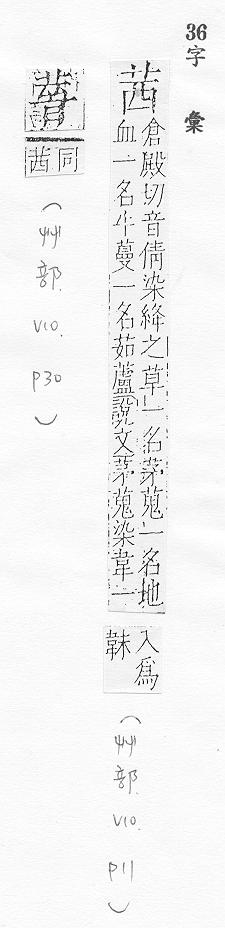 36字 彙
茜
倉殿切音倩染絳之草一名茅蒐一名地
血一名牛蔓一名茹蘆說文茅蒐染韋一
入爲
韎
（艸部. V10. P11）
同
茜
（艸部. V10. P30）